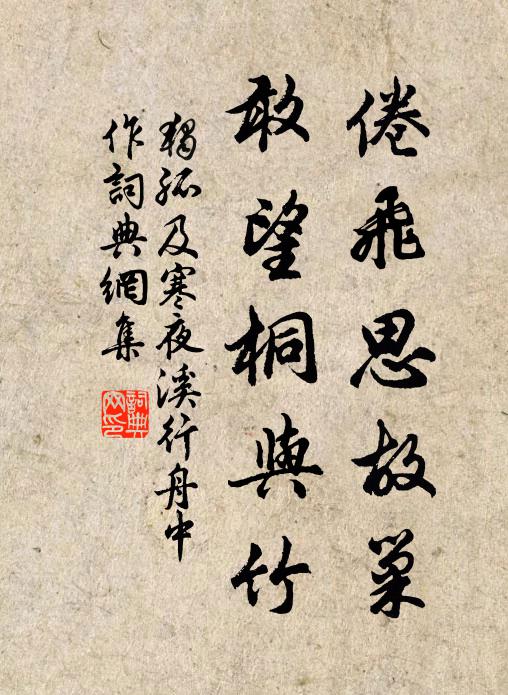 倦飛思故巢
敢望桐與竹
獨孤及寒夜溪行舟中
作詞典網集
詞典
网印